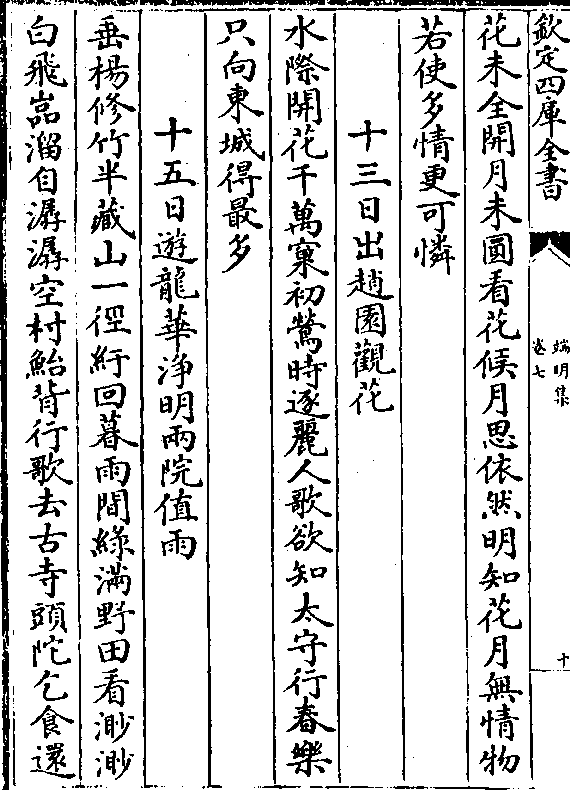 欽定四庫全書
端明集
卷七
十
花未全開月未圓看花候月思依然明知花月無情物
若使多情更可憐
十三日出趙園觀花
水際開花千萬窠初鶯時逐麗人歌欲知太守行春樂
只向東城得最多
十五日遊龍華淨明兩院值雨
垂楊修竹半藏山一徑紆回暮雨間綠滿野田看渺渺
白飛嵓溜自潺潺空村鮐背行歌去古寺頭陀乞食還